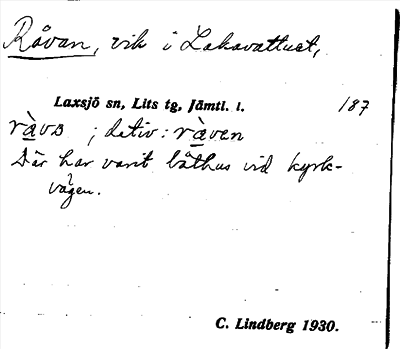 Råvan, vik i Laksavattnet,
Laxsjö sn, Lits tg, Jämtl. l. 187
ràvɒ ; dativ: ràven
Där har varit båthus vid kyrk-
vägen.
C. Lindberg 1930.